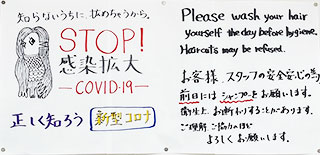 知らないうちに、拡めちゃうから。
STOP!
感染拡大
—COVID-19—
正しく知ろう 新型コロナ
Please wash your hair
yourself the day before hygiene.
Haircuts may be refused.
お客様、スタッフの安全安心の為
前日にはシャンプーをお願いします。
衛生上、お断わりすることがあります。
ご理解、ご協力のほど
よろしくお願いします。